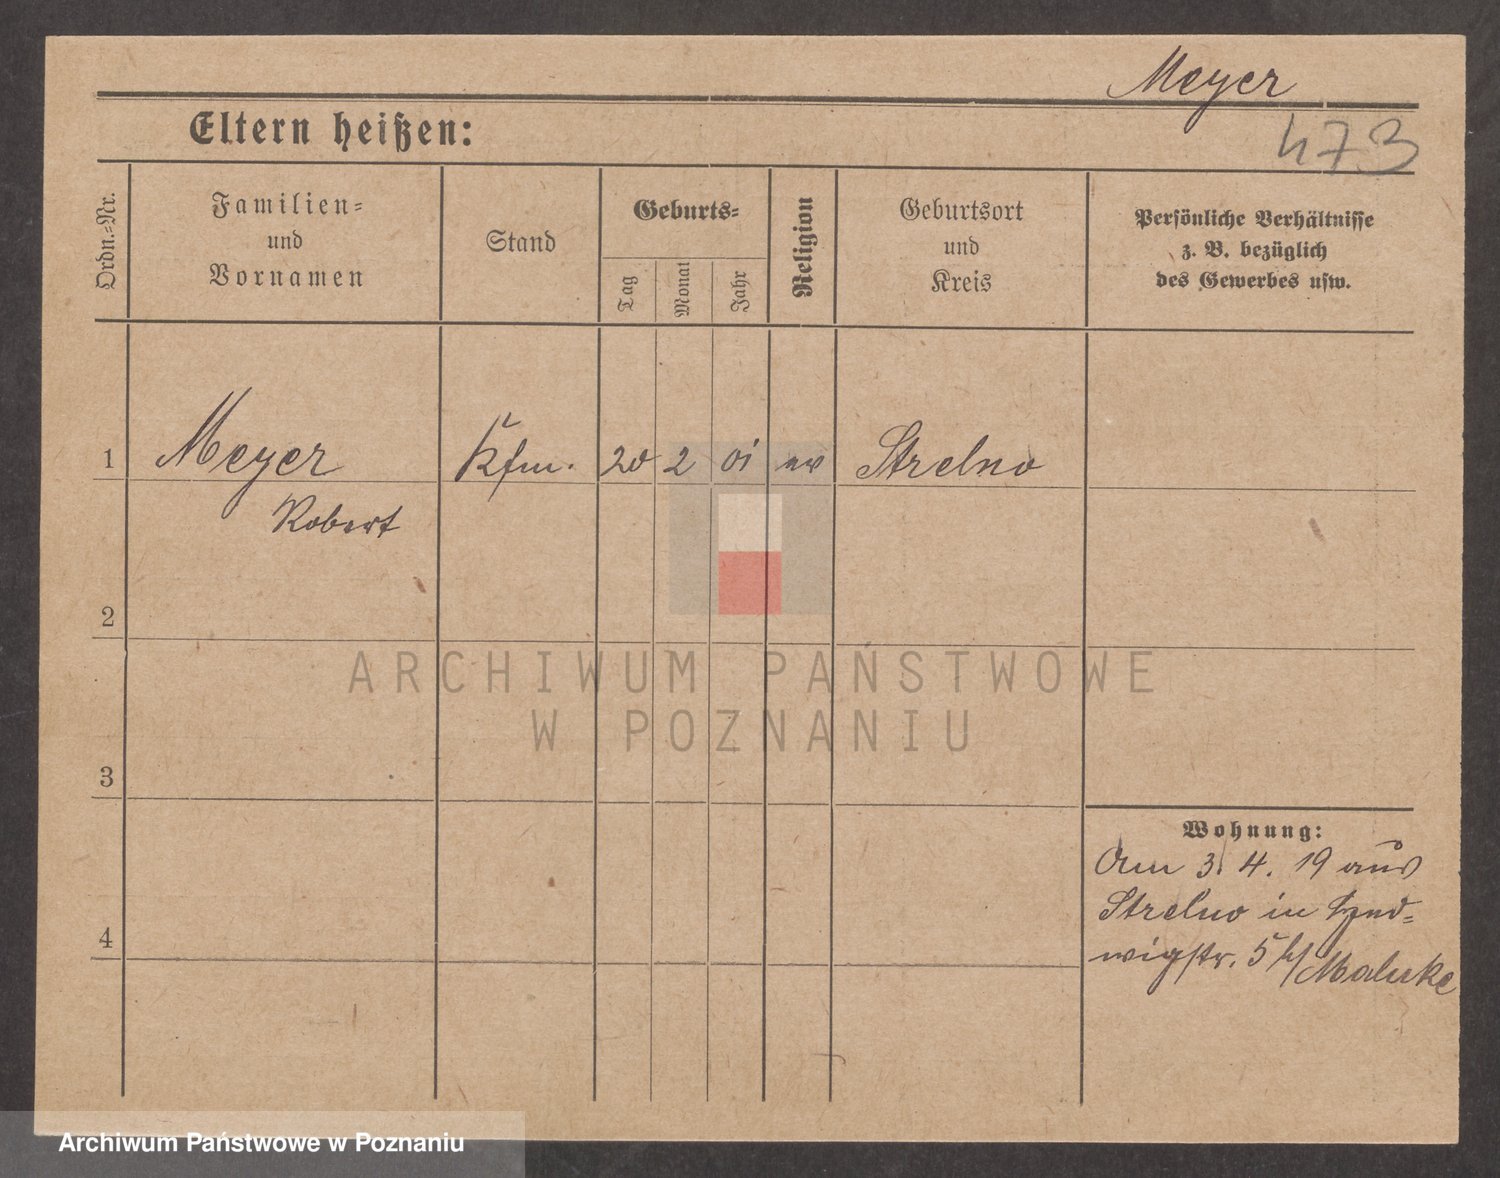 Meyer
473
Eltern heißen:
Ordn.-Nr.
Familien-
und
Vornamen
Stand
Geburts-
Tag
Monat
Jahr
Religion
Geburtsort
und
Kreis
Persönliche Verhältnisse
z. B. bezüglich
des Gewerbes usw.
1 Meyer Kfm. 20 2 01 ev Strelno
Robert
2
ARCHIWUM PAŃSTWOWE
W POZNANIU
3
4
Wohnung:
Am 3. 4. 19 aus
Strelno in Hed-
wigstr. 5 b/
Archiwum Państwowe w Poznaniu